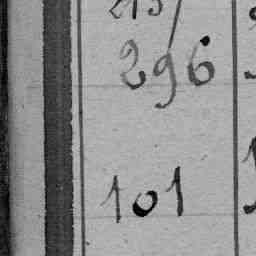 296
101